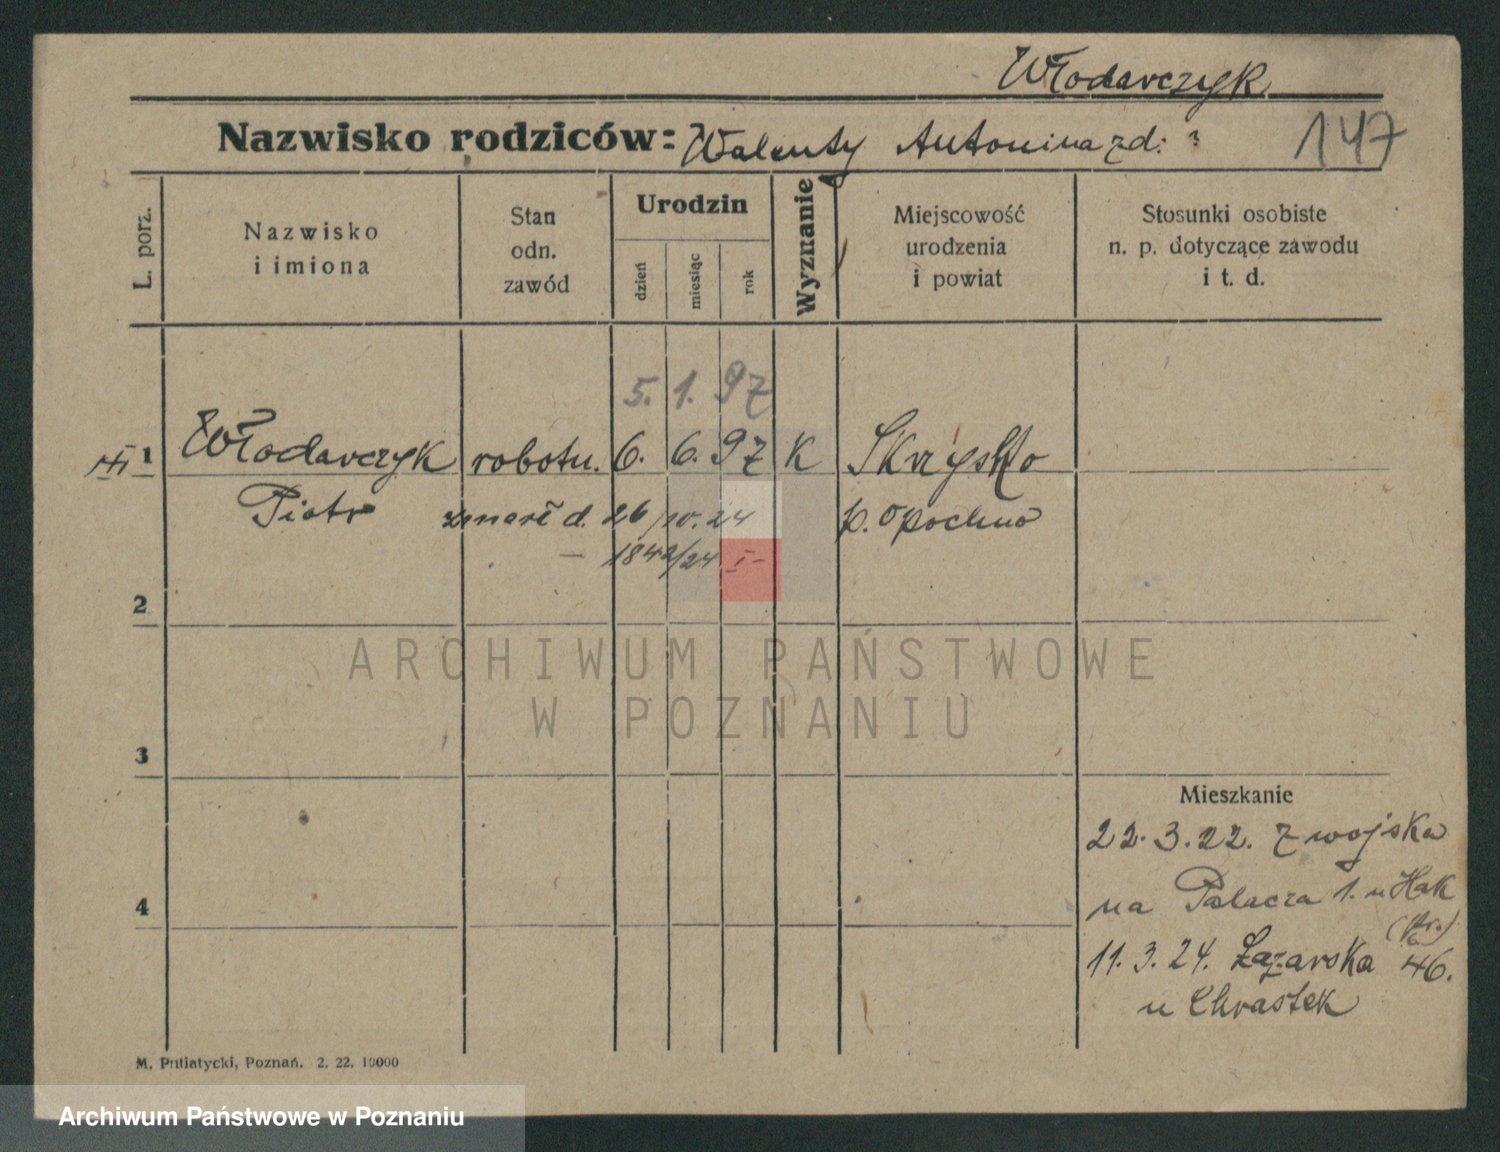 Włodarczyk
Nazwisko rodziców: Walenty Antonina zd: ?
147
L. porz.
Nazwisko
i imiona
Stan
odn.
zawód
Urodzin
dzień
miesiąc
rok
Wyznanie
Miejscowość
urodzenia
i powiat
Stosunki osobiste
n. p. dotyczące zawodu
i t. d.
5. 1. 97
1 Włodarczyk robotn. 6. 6. 97 K Skrzyńsko
Piotr zmarł d. 26/10.24 p. Opoczno
1842/24 I-
2
3
4
Mieszkanie
22.3.22. z wojska
na Palacza 1. u Hak
11.3.24. Łazarska 46.
u Chrastek
M. Putiatycki, Poznań. 2. 22. 10000
ARCHIWUM PAŃSTWOWE
W POZNANIU
Archiwum Państwowe w Poznaniu